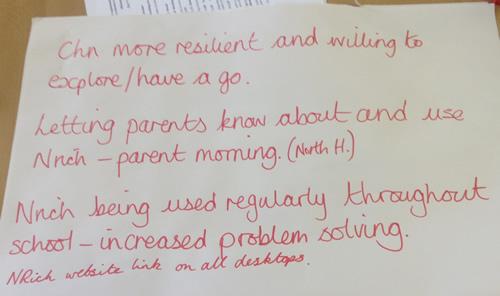 Chn more resilient and willing to
explore/have a go.
Letting parents know about and use
Nrich - parent morning. (North H.)
Nrich being used regularly throughout
school - increased problem solving.
NRich website link on all desktops.